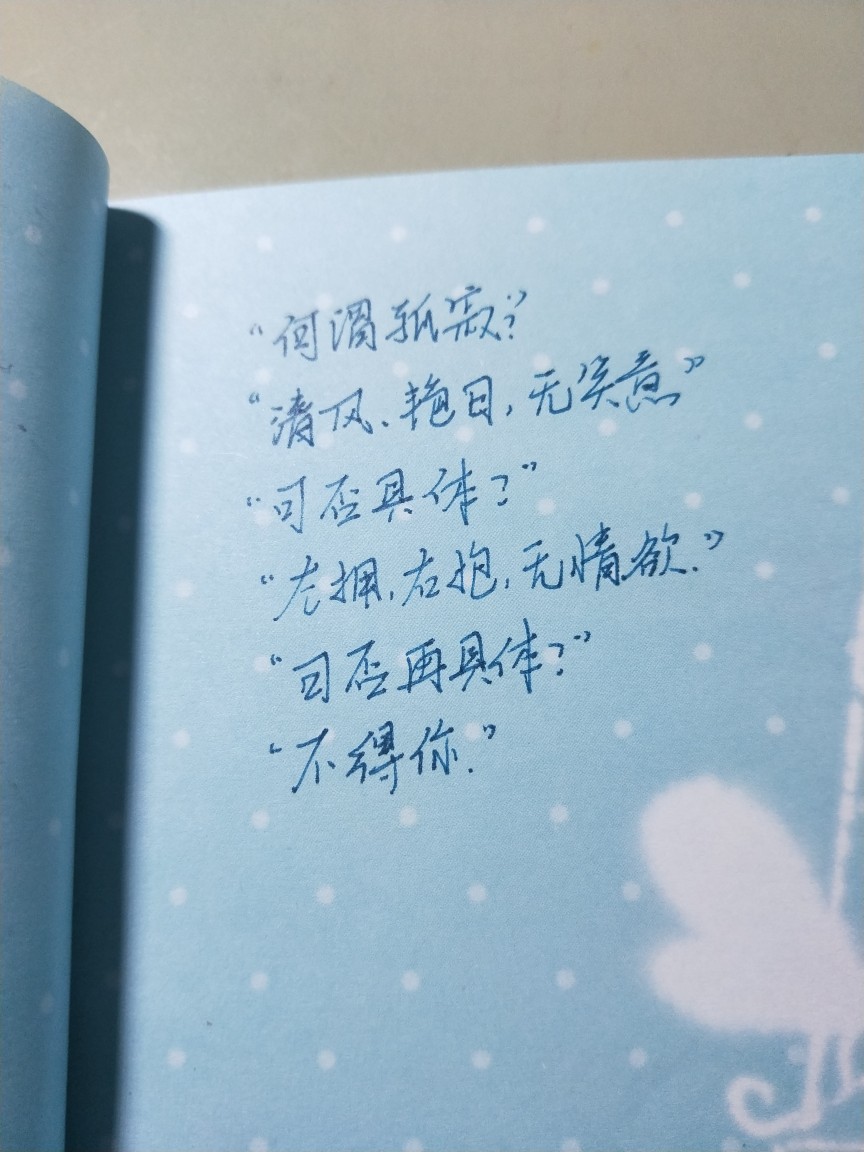 “何谓孤寂？
“清风、艳日，无笑意”
“可否具体？”
“左拥，右抱，无情欲.”
“可否再具体？”
“不得你.”